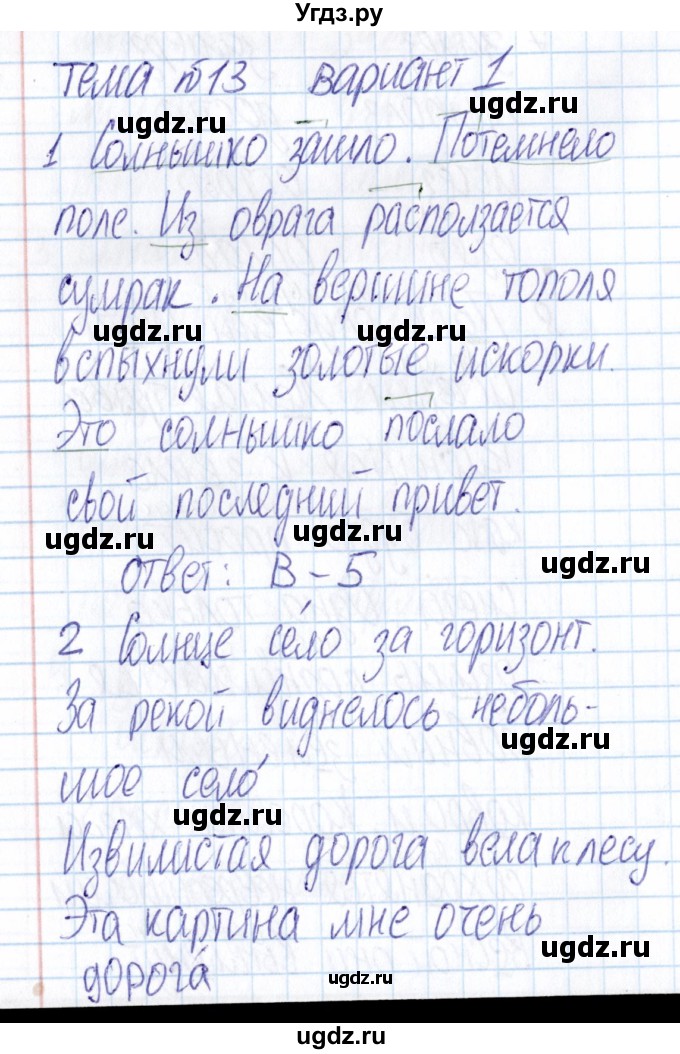 Угдз.ру
тема №13 вариант 1
ugdz.ru ugdz.ru
1 Солнышко зашло. Потемнело
поле. Из оврага расползается
сумрак. На вершине тополя
ugdz.ru ugdz.ru
вспыхнули золотые искорки.
Это солнышко послало
свой последний привет.
ugdz.ru ugdz.ru ugdz.ru
ответ: В – 5
2 Солнце се́ло за горизонт.
За рекой виднелось неболь-
ugdz.ru
шое село́
ugdz.ru
Извилистая дорога вела к лесу.
Эта картина мне очень
ugdz.ru
дорога́
ugdz.ru
ugdz.ru